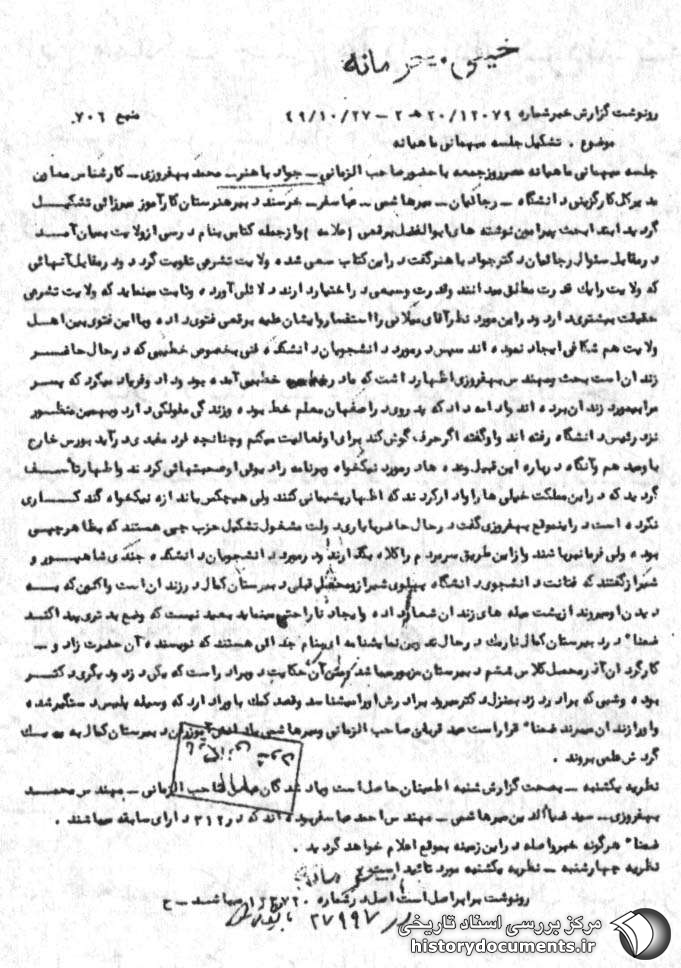 خیلی محرمانه
رونوشت گزارش خبر شماره ۲۰/۱۲۰۷۹ هـ ۲ – ۴۹/۱۰/۲۷ منبع ۷۰۶
موضوع . تشکیل جلسه میهمانی ماهیانه
جلسه میهمانی ماهیانه عصر روز جمعه با حضور صاحب الزمانی – جواد باهنر – محمد بهفروزی – کارشناس معاون
مدیرکل کارگزینی دانشگاه – رجائیان – میرهاشمی – عباسفر – خرسند دبیر هنرستان کارآموز میرزائی تشکیل
گردید ابتدا بحث پیرامون نوشته های ابوالفضل برقعی (علامه) و از جمله کتابی بنام درسی از ولایت بمیان آمد
در مقابل سئوال رجائیان دکتر جواد باهنر گفت در این کتاب سعی شده ولایت تشرعی تقویت گردد و در مقابل آنهائی
که ولایت را یک قدرت مطلق میدانند و قدرت وسیعی در اختیار دارند دلائلی آورده و ثابت مینماید که ولایت تشرعی
حقیقت بیشتری دارد و در این مورد نظر آقای میلانی را استفسار و ایشان علیه برقعی فتوی داده و با این فتوی بین اهل
ولایت هم شکافی ایجاد نموده اند سپس در مورد دانشجویان دانشکده فنی بخصوص خطیبی که در حال حاضر
زندان است بحث و مهندس بهفروزی اظهار داشت که مادر خطیبی آمده بود و داد و فریاد میکرد که پسر
مرا بیمورد زندان برده اند و ادامه داد که پدر وی در اصفهان معلم خط بوده و زندگی مفلوکی دارد و بهمین منظور
نزد رئیس دانشگاه رفته اند و او گفته اگر حرف گوش کند برای او فعالیت میکنم و چنانچه فرد مفیدی درآید بورس خارج
با و میدهم و آنگاه در باره این قبیل وعده ها در مورد نیکخواه و برنامه رادیوئی او صحبتهائی کردند و اظهار تأسف
گردید که در این مملکت خیلی ها را وادار کردند که اظهار پشیمانی کنند ولی هیچکس باندازه نیکخواه گند کاری
نکرده است در اینموقع بهفروزی گفت در حال حاضر دولت مشغول تشکیل حزب چپی هستند که بظاهر چپی
بوده ولی فرمانبر باشند و از این طریق سر مردم را کلاه بگذارند و در مورد دانشجویان دانشکده جندی شاهپور و
شیراز گفتند که دانشجوی دانشگاه پهلوی شیراز و محصل قبلی دبیرستان کمال در زندان است و اکنون که به
دیدن او میروند از پشت میله های زندان شعار داده و ایجاد ناراحتی مینماید بعید نیست که وضع بدتری پیدا کند
ضمنا" در دبیرستان کمال نارمک در حال تمرین نمایشنامه ای بنام جدالی هستند که نویسنده آن حضرت زاد و –
کارگردان آذر محصل کلاس ششم دبیرستان مزبور میباشد و متن آن حکایت دو برادر است که یکی دزد و دیگری دکتر
بوده و شبی که برادر دزد بمنزل دکتر میرود برادرش او را میشناسد و قصد کمک باو را دارد که وسیله پلیس دستگیر شده
و او را زندان میبرند ضمنا" قرار است عید قربان صاحب الزمانی و میرهاشمی دبیرستان کمال به یک
گردش علمی بروند .
نظریه یکشنبه – بصحت گزارش شنبه اطمینان حاصل است و یاد شدگان صاحب الزمانی – مهندس محمد
بهفروزی – سید ضیاءالدین میرهاشمی – مهندس احمد عباسفر بوده اند که در ۳۱۲ دارای سابقه میباشند .
ضمنا" هرگونه خبر واصله در این زمینه بموقع اعلام خواهد گردید .
نظریه چهارشنبه – نظریه یکشنبه مورد تائید است
رونوشت برابر اصل است اصل در شماره میباشد – ح
۲۷۹۹۷
مرکز بررسی اسناد تاریخی
historydocuments.ir